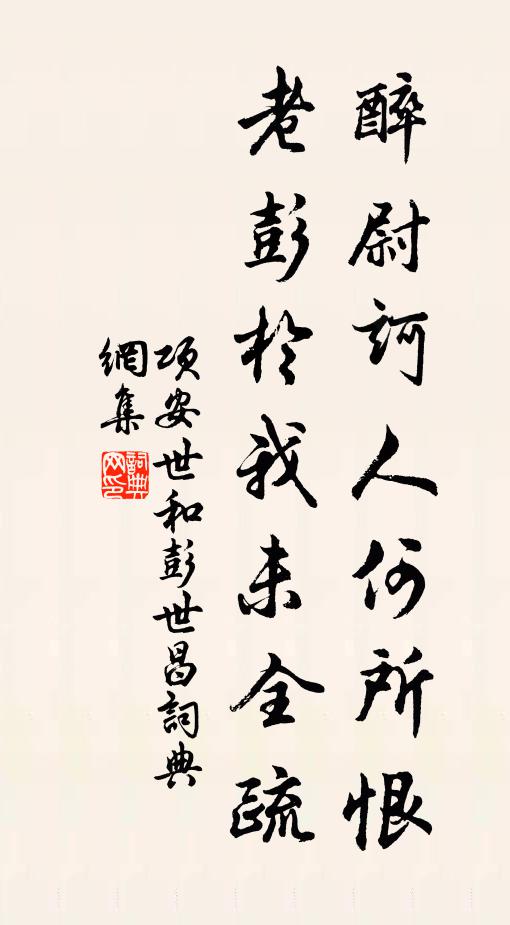 醉尉訶人何所恨
老彭於我未全疏
項安世和彭世昌詞典
網集
詞典
网印